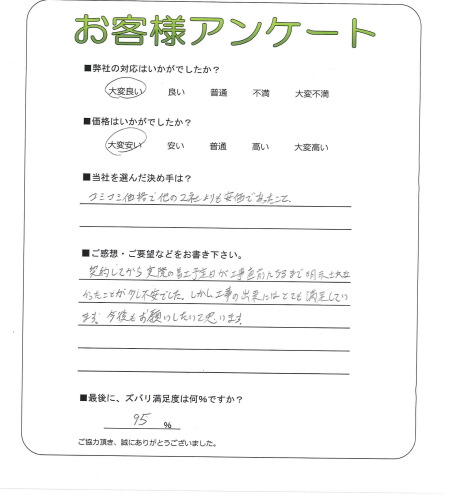 お客様アンケート
■弊社の対応はいかがでしたか？
大変良い 良い 普通 不満 大変不満
■価格はいかがでしたか？
大変安い 安い 普通 高い 大変高い
■当社を選んだ決め手は？
コミコミ価格で他の2社よりも安価であったこと、
■ご感想・ご要望などをお書き下さい。
契約してから実際の着工予定日が工事直前になるまで
かったことが少し不安でした。しかし工事の出来にはとても満足してい
ます。今後もお願いしたいと思います。
■最後に、ズバリ満足度は何%ですか？
95 %
ご協力頂き、誠にありがとうございました。